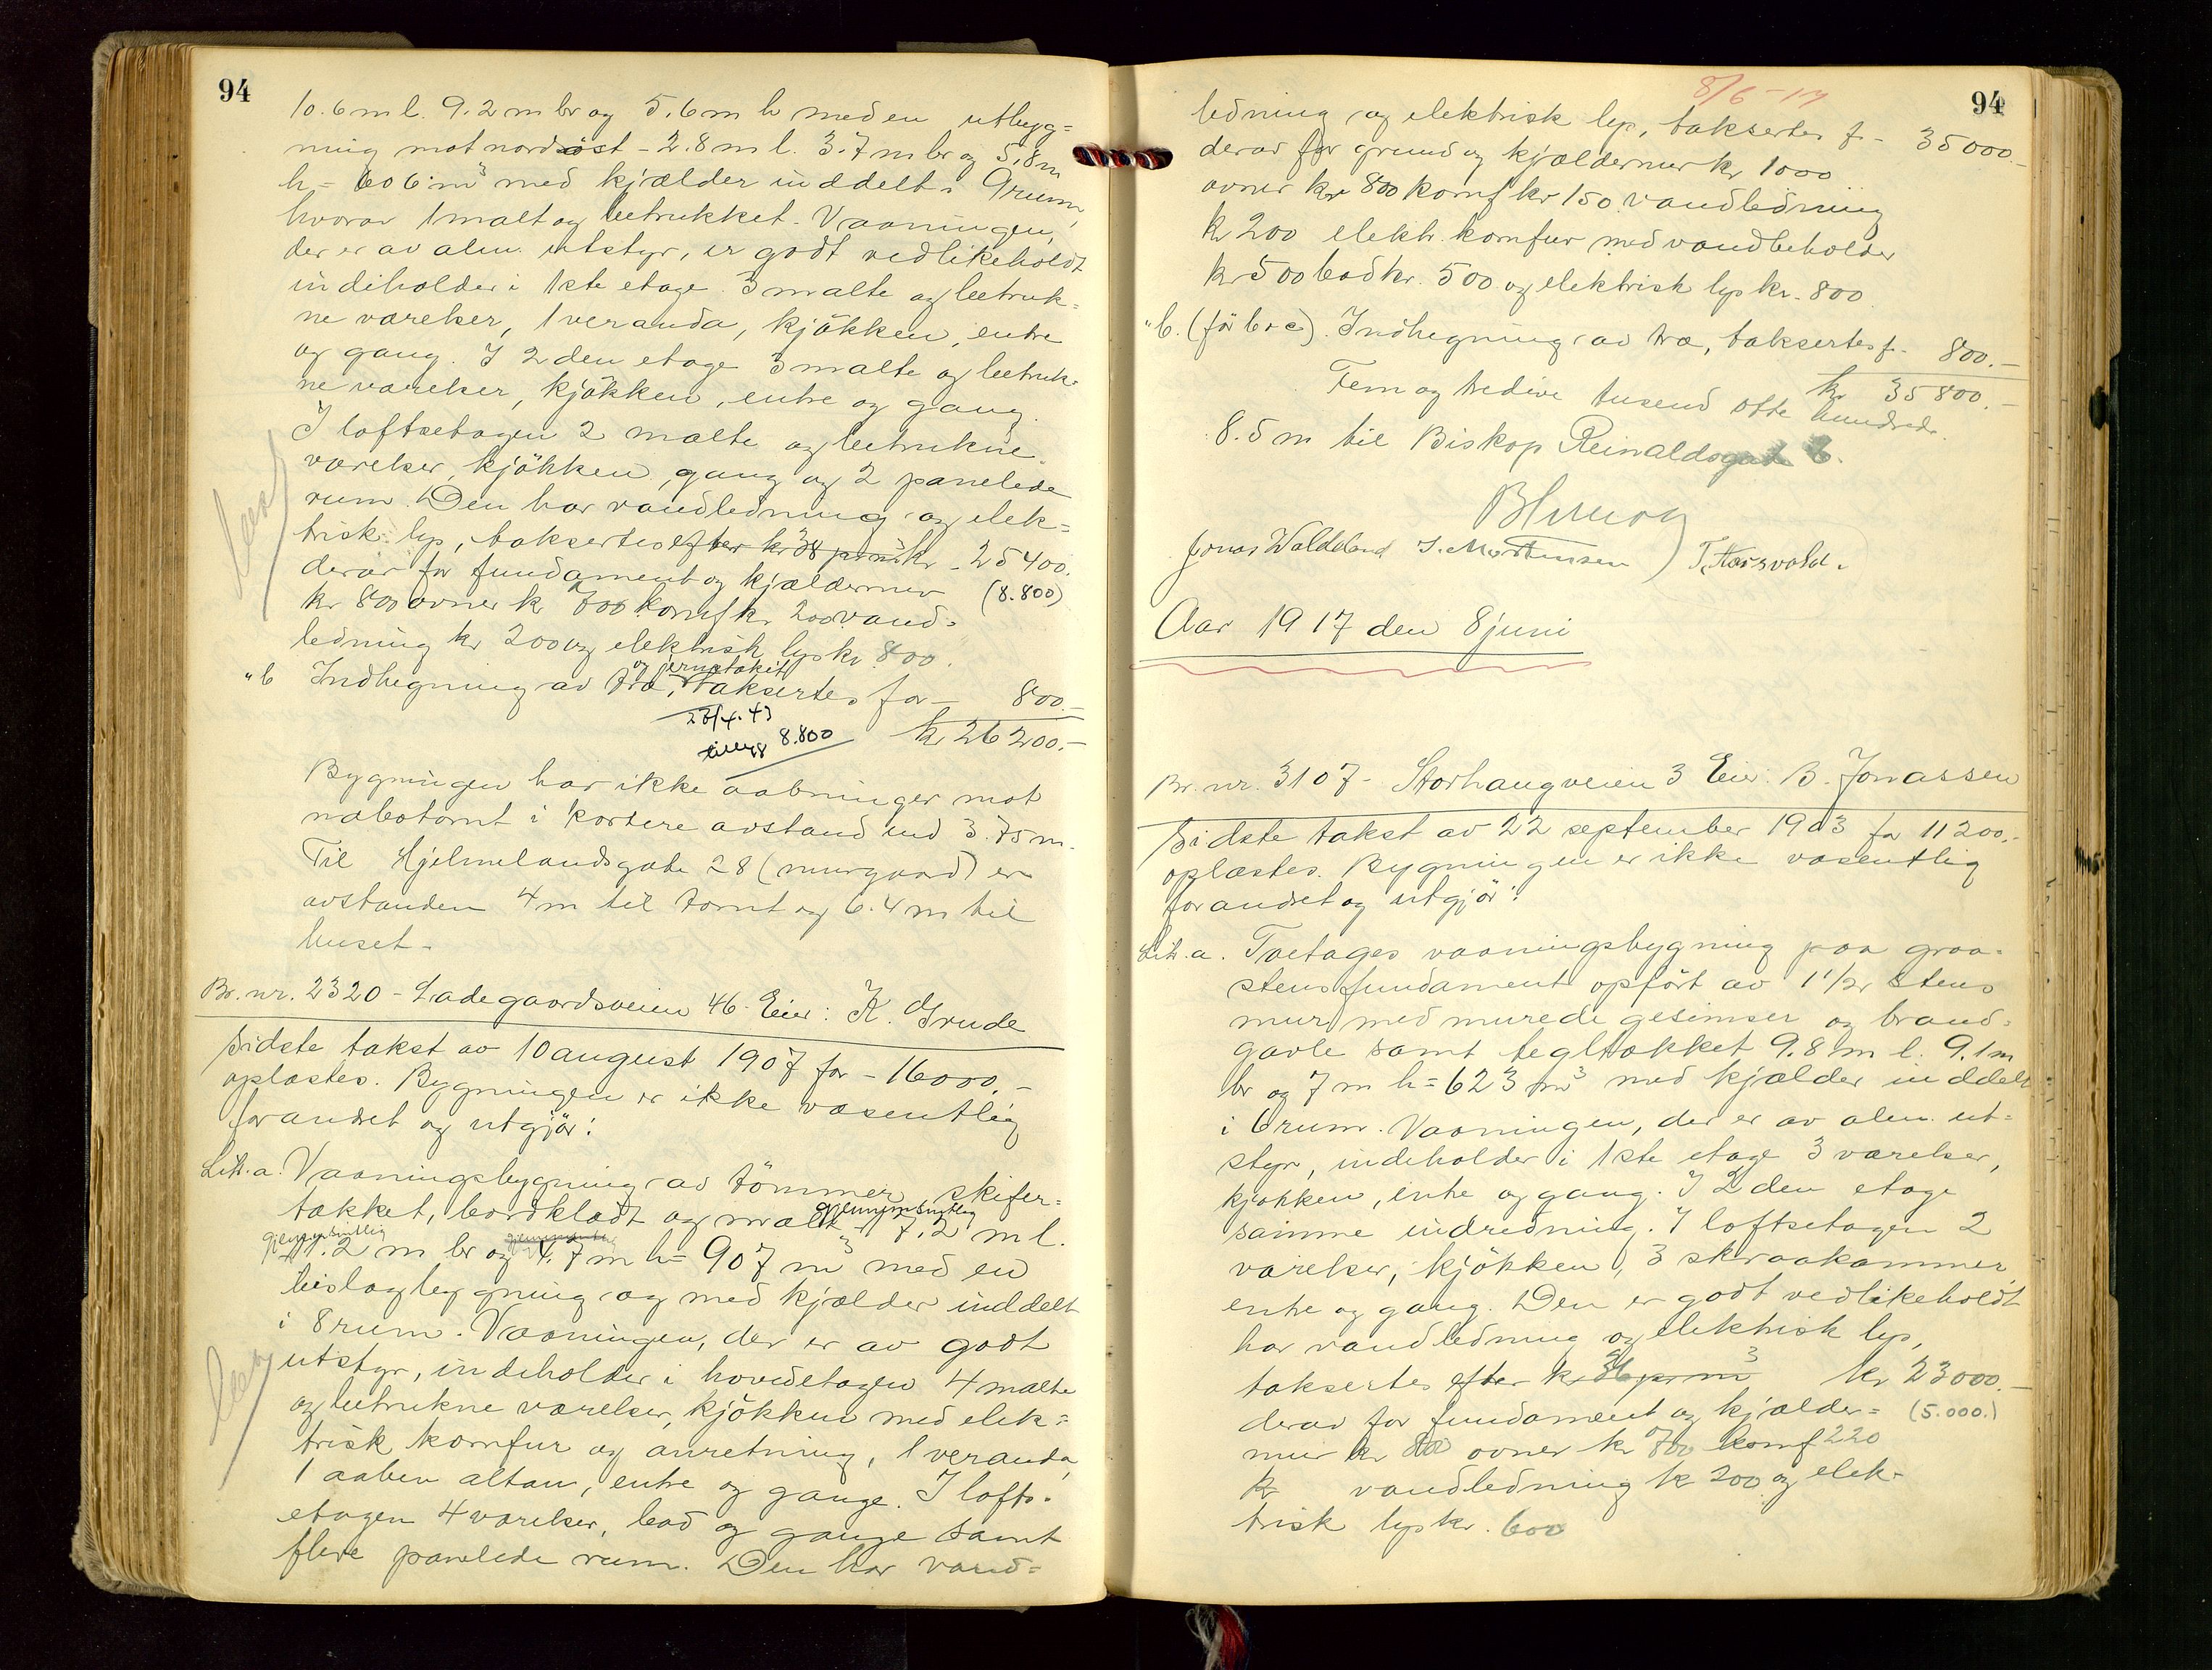 94
10.6 m l. 9.2 m br og 5.6 m h med en utbyg=
ning mot nordöst - 2.8 m l. 3.7 m br og 5.8 m
h = 606 m³ med kjælder inddelt i 9 rum,
hvorav 1 malt og betrukket. Vaaningen,
der er av alm. utstyr, er godt vedlikeholdt
indeholder i 1ste etage 3 malte og betruk=
ne værelser, 1 veranda, kjökken, entre
og gang. I 2den etage 3 malte og betruk=
ne værelser, kjökken, entre og gang.
I loftsetagen 2 malte og betrukne
værelser, kjökken, gang og 2 panelede
rum. Den har vandledning og elek=
trisk lys, taksertes efter kr 38 pr m³ kr - 25400.
derav for fundament og kjældermur (8.800)
kr 800 ovner kr 700 komf kr 200 vand=
ledning kr 200 og elektrisk lys kr 800.
og jernstakit
" b Indhegning av træ, taksertes for - 800.-
26/4.43
8.800 kr 26200.-
Bygningen har ikke aabninger mot
nabotomt i kortere avstand end 3.75 m.
Til Hjelmelandsgate 28 (murgaard) er
avstanden 4 m til tomt og 6.4 m til
huset.
Br. nr. 2320 - Ladegaardsveien 46 Eier: K. Grude
Sidste takst av 10 august 1907 for - 16000.-
oplæstes. Bygningen er ikke væsentlig
forandret og utgjör:
Lit. a. Vaaningsbygning av tömmer, skifer=
tækket, bordklædt og malt
gjennemsnitlig
7.2 m l.
gjennemsnitlig
2 m br og 4.7 m h = 907 m³ med en
bislagbygning og med kjælder inddelt
i 8 rum. Vaaningen, der er av godt
utstyr, indeholder i hovedetagen 4 malte
og betrukne værelser, kjökken med elek=
trisk komfur og anretning, 1 veranda,
1 aaben altan, entre og gange. I lofts=
etagen 4 værelser, bad og gange samt
flere panelede rum. Den har vand=
8/6-17
94
ledning og elektrisk lys, taksertes f - 35000.-
derav for grund og kjældermur kr 1000
ovner kr 800 komf kr 150 vandledning
kr 200 elektr. komfur med vandbeholder
kr 500 bad kr. 500 og elektrisk lys kr. 800
" b. (för b + c). Indhegning av træ, taksertes f. 800.-
kr 35800.-
Fem og tredive tusend otte hundrede.
8.5 m til Biskop Reinaldsgate 6.
Jonas Waldeland J. Mortensen T. Haarvold.
Aar 1917 den 8 juni
Br. nr. 3107 - Storhaugveien 3 Eier: B. Jonassen
Sidste takst av 22 september 1903 for 11200.-
oplæstes. Bygningen er ikke væsentlig
forandret og utgjör:
Lit. a. Toetages vaaningsbygning paa graa=
stensfundament opfört av 1½ stens
mur med murede gesimser og brand=
gavle samt tegltækket 9.8 m l. 9.1 m
br og 7 m h = 623 m³ med kjælder inddelt
i 6 rum. Vaaningen, der er av alm. ut=
styr, indeholder i 1ste etage 3 værelser,
kjökken, entre og gang. I 2den etage
samme indredning. I loftsetagen 2
værelser, kjökken, 3 skraakammer
entre og gang. Den er godt vedlikeholdt
har vandledning og elektrisk lys,
taksertes efter kr 36 pr m³ kr 23000.-
derav for fundament og kjælder= (5.000.)
mur kr 800 ovner kr 700 komf 220
kr vandledning kr 200 og elek=
trisk lys kr. 600